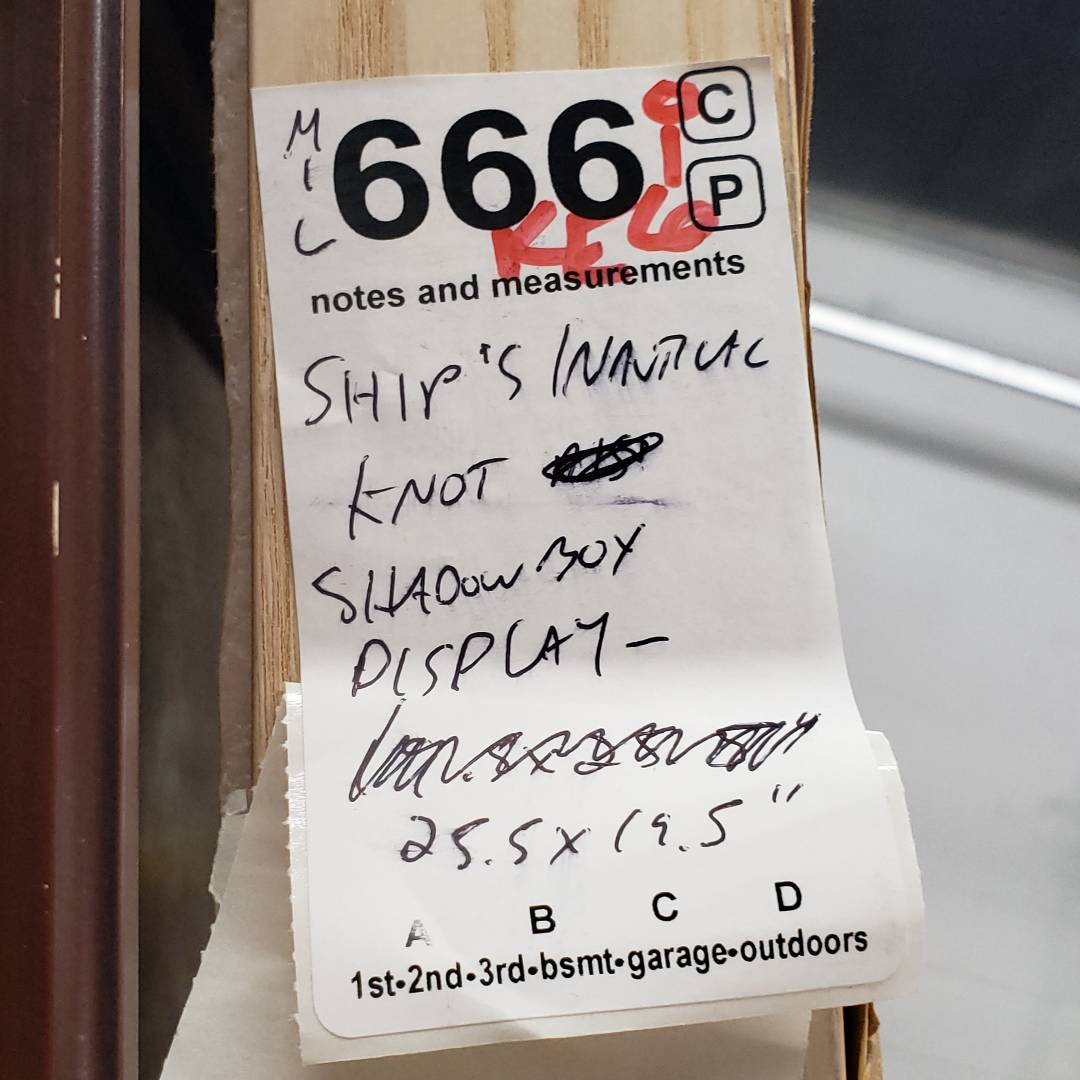 MIL
666
C
P
notes and measurements
SHIP'S / NAUTICAL
KNOT
SHADOWBOX
DISPLAY-
25.5 x 19.5"
A B C D
1st•2nd•3rd•bsmt•garage•outdoors